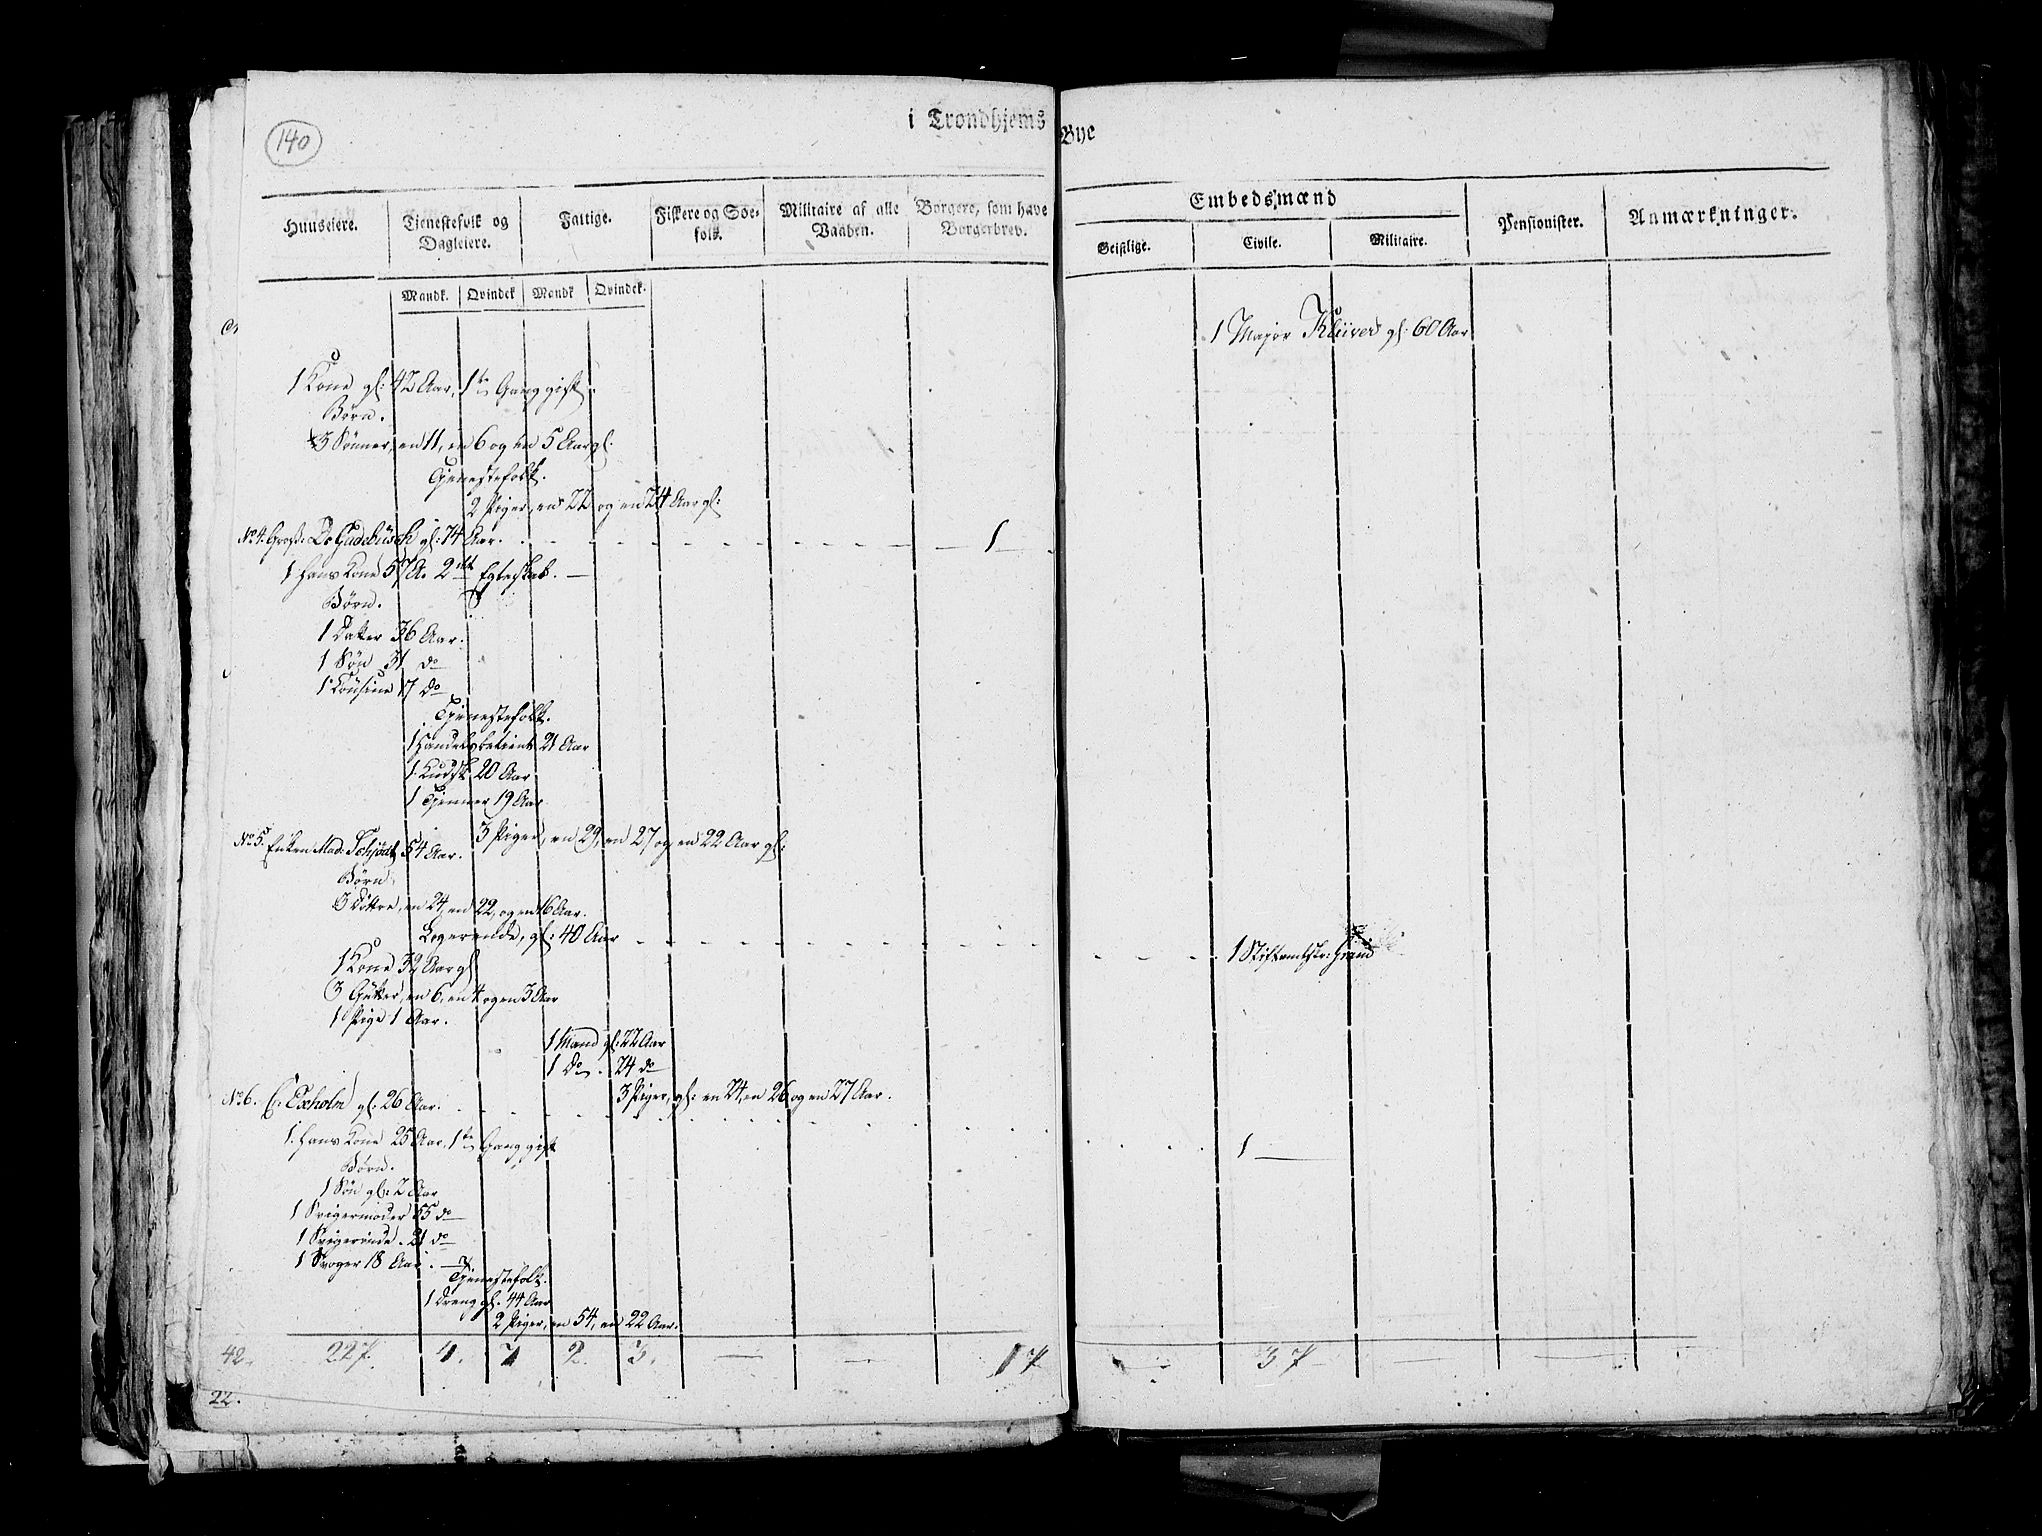 140
i Trondhjems Bye
Huuseiere.
Tjenestefolk og Dagleiere.
Fattige.
Fiskere og Søefolk.
Militaire af alle Vaaben.
Borgere, som have Borgerbrev.
Embedsmænd
Geistlige.
Civile.
Militaire.
Pensionister.
Anmærkninger.
Mandk. Qvindek Mandk Qvindek.
1 Major Klüver gl: 60 Aar
1 Kone gl: 42 Aar, 1te Gang gift.
Børn.
3 Sønner, en 11, en 6 og en 5 Aar gl.
Tjenestefolk.
2 Piger, en 22 og en 24 Aar gl:
No 4. Gross: gl: 74 Aar. 1
1 Hans Kone 57 A. 2det Egteskab.
Børn.
1 Datter 36 Aar.
1 Søn 31 do
1 Cousine 17 do
Tjenestefolk.
1 Handelsbetient 21 Aar
1 Kudsk 20 Aar
1 Tjenner 19 Aar
3 Piger, en 29, en 27 og en 22 Aar gl:
No 5. Enken Mad. Schjødt 54 Aar.
Børn
3 Døttre, en 24, en 22, og en 16 Aar.
Logerende, gl: 40 Aar 1 Stiftamtskr:
1 Kone 32 Aar gl
3 Gutter, en 6, en 4 og en 3 Aar
1 Pige 1 Aar.
1 Mand gl: 22 Aar
1 Do. 24 do
3 Piger, gl: en 24, en 26 og en 27 Aar.
No 6. C: Exholm gl: 26 Aar. 1
1. Hans Kone 25 Aar, 1te Gang gift
Børn.
1 Søn gl: 2 Aar
1 Svigermoder 55 do
1 Svigerinde. 21 do
1 Svoger 18 Aar.
Tjenestefolk.
1 Dreng gl. 44 Aar
2 Piger, en 54, en 22 Aar.
42. 227. 4. 7 2. 3. — — 17 — 37 — —
22.